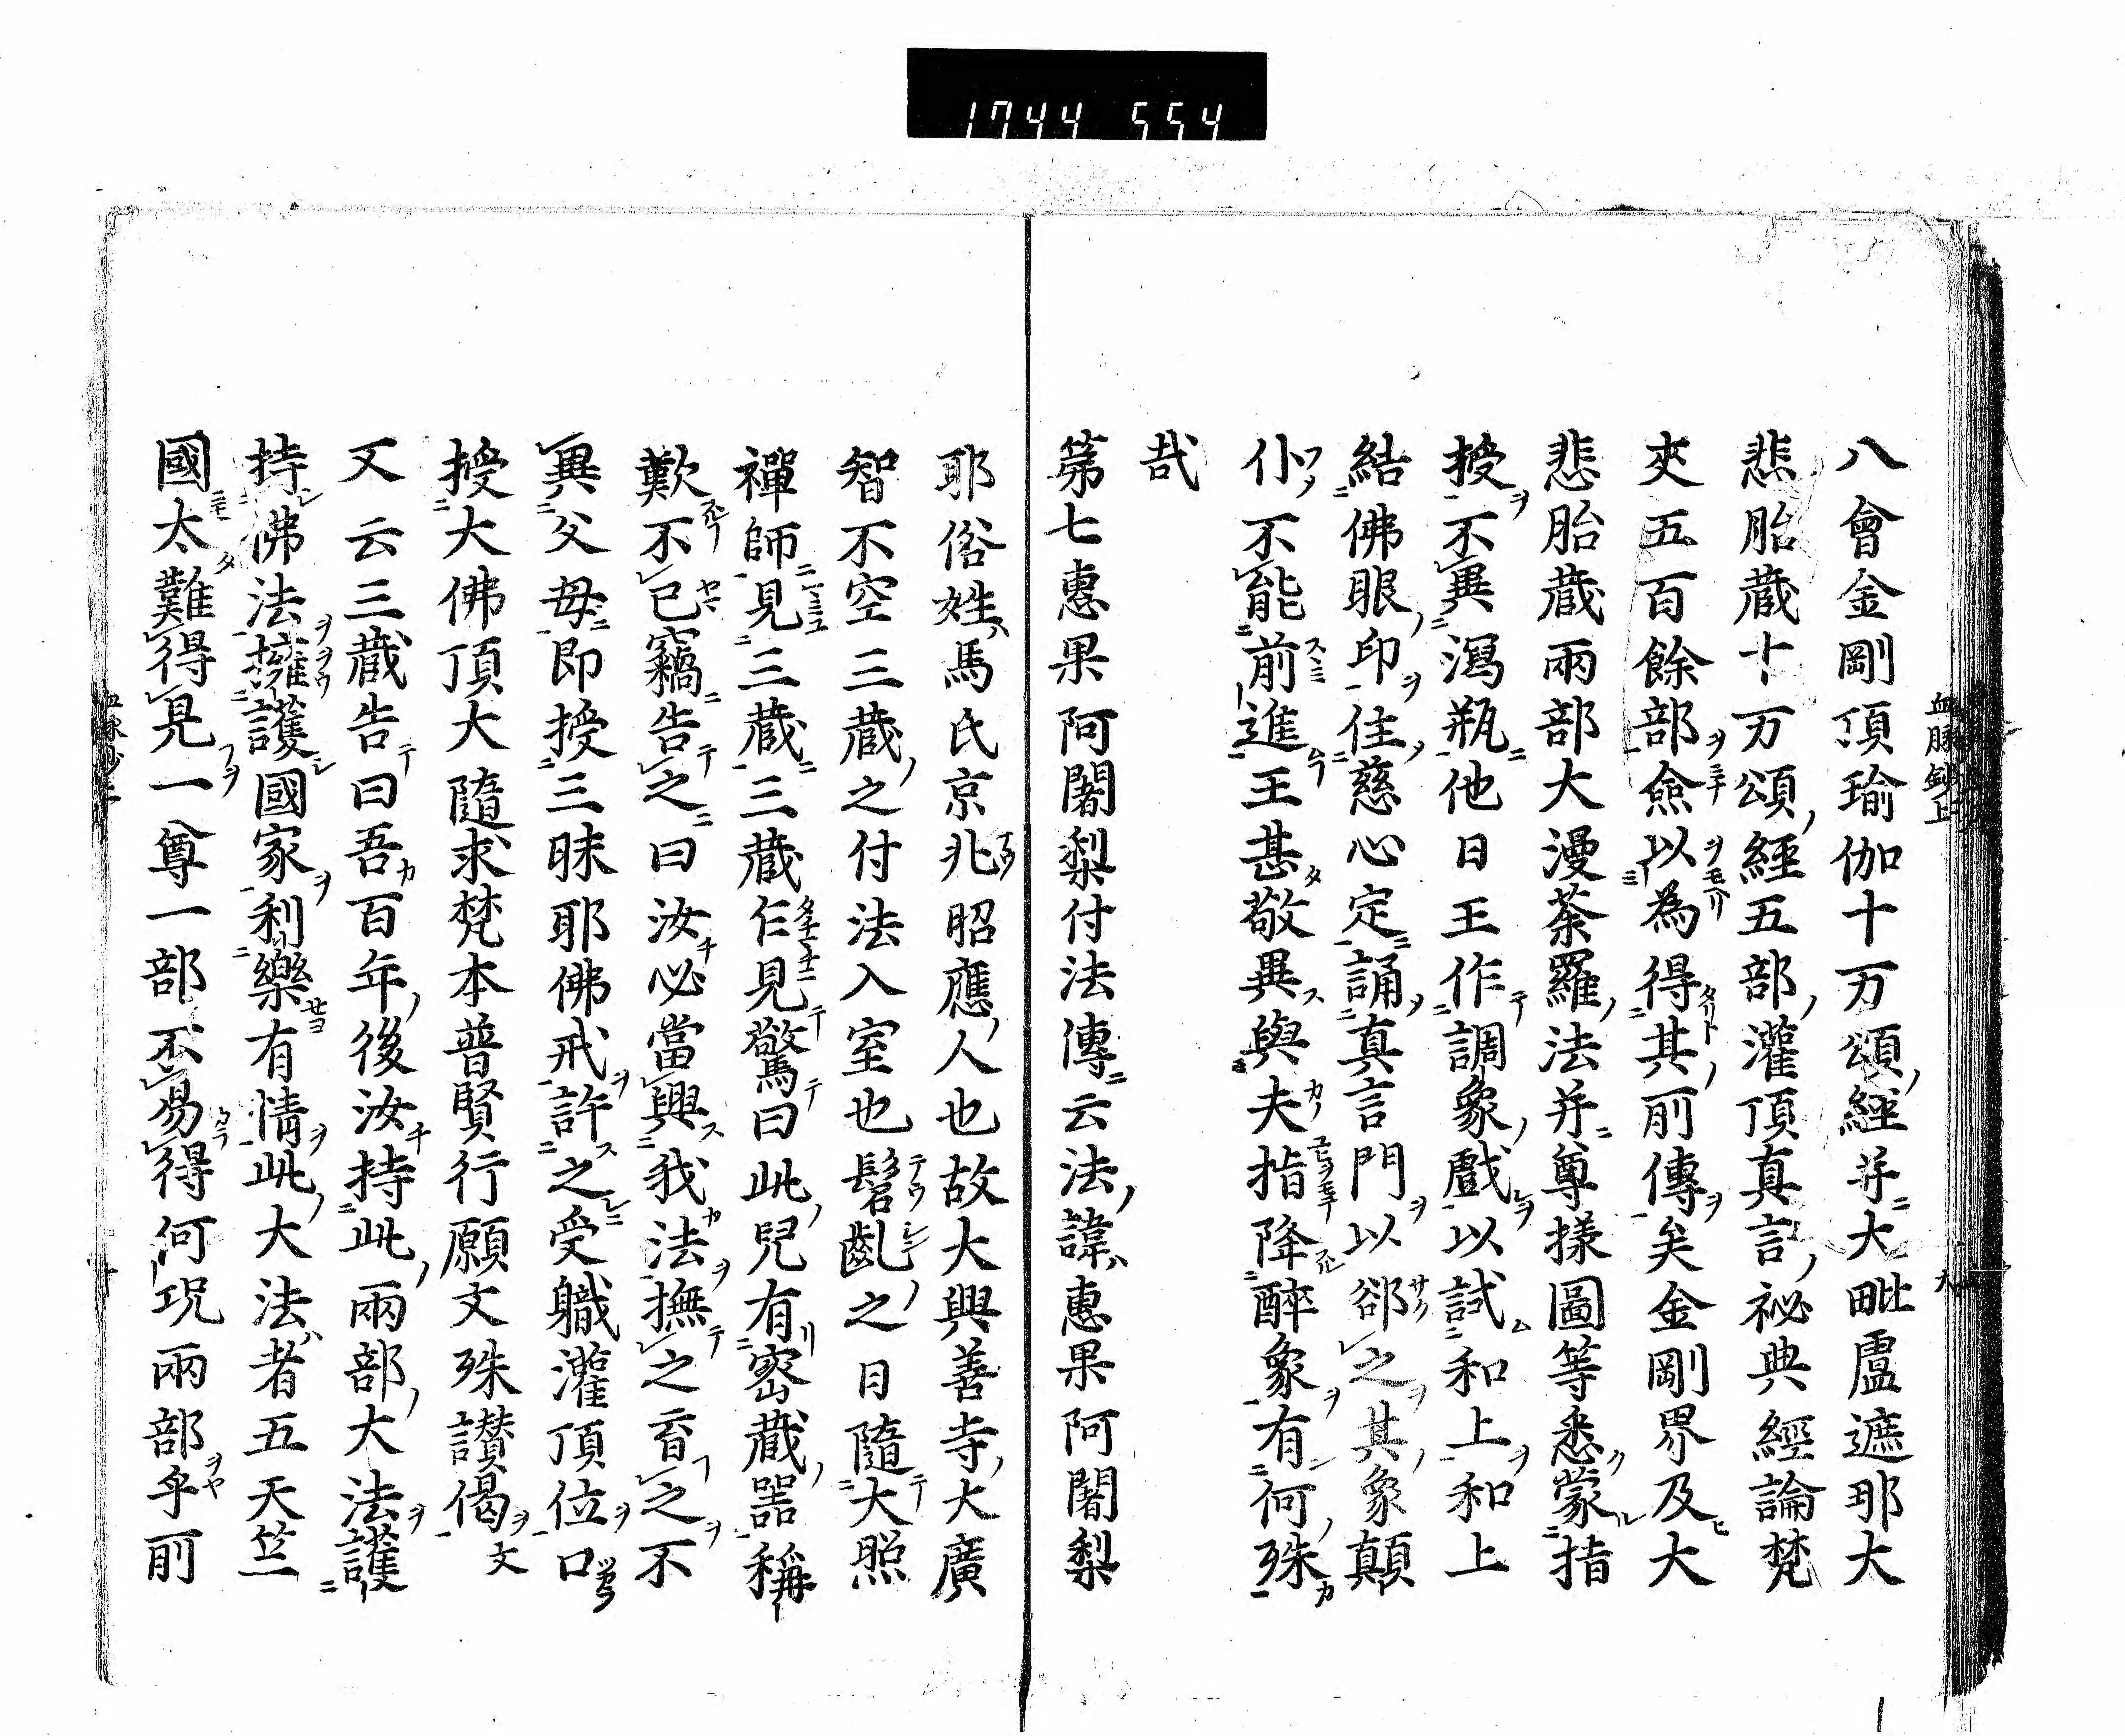 1744 554
八會金剛頂瑜伽十万頌經并大毗盧遮那大
悲胎蔵十万頌經五部灌頂真言祕典經論梵
夾五百餘部僉以為得其前傳矣金剛界及大
悲胎蔵兩部大漫荼羅法并尊様圖等悉蒙指
授不異瀉瓶他日王作調象戯以試和上和上
結佛眼印住慈心定誦真言門以郤之其象顛
仆不能前進王甚敬異與夫指降醉象有何殊
哉
第七惠果阿闍梨付法傳云法諱惠果阿闍梨
耶俗姓馬氏京兆昭應人也故大興善寺大廣
智不空三蔵之付法入室也髫齔之日隨大照
禪師見三蔵三蔵乍見驚曰此兒有密蔵噐稱
歎不已竊告之曰汝必當興我法撫之育之不
異父母即授三昧耶佛戒許之受職灌頂位口
授大佛頂大隨求梵本普賢行願文殊讃偈文
又云三蔵告曰吾百年後汝持此兩部大法護
持佛法擁護國家利樂有情此大法者五天竺
國太難得見一尊一部不易得何况兩部乎前